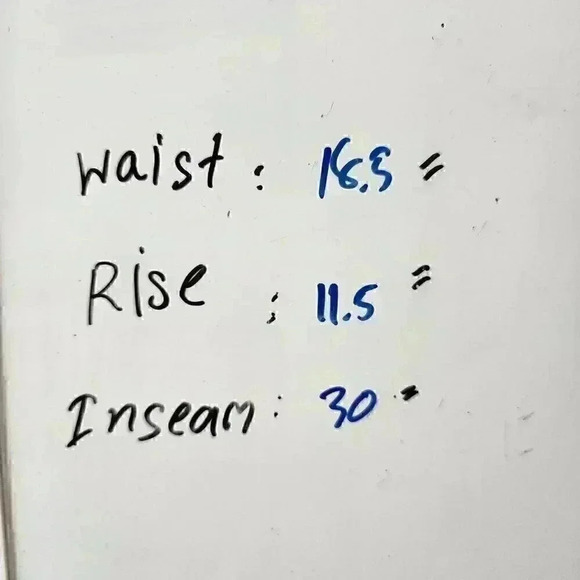 Waist : 18.5 "
Rise : 11.5 "
Inseam : 30 "